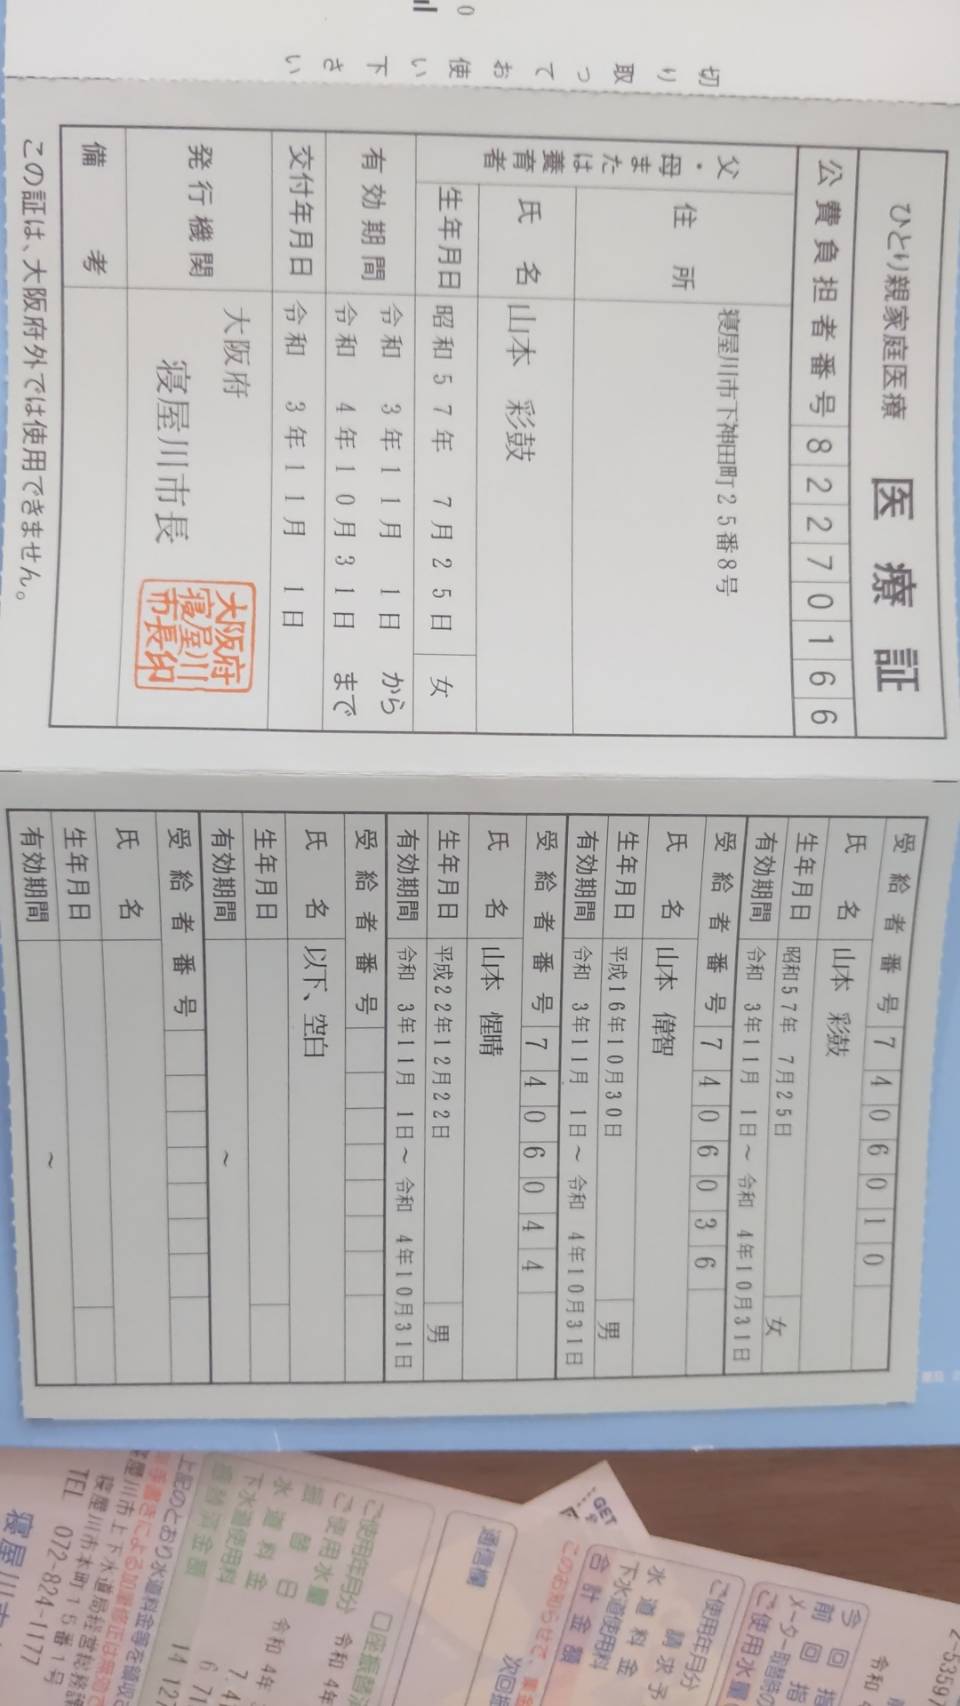 切り取ってお使い下さい
ひとり親家庭医療 医療証
公費負担者番号 82270166
父・母または養育者
住所 寝屋川市下神田町25番8号
氏名 山本 彩鼓
生年月日 昭和57年 7月25日 女
有効期間 令和 3年11月 1日 から
令和 4年10月31日 まで
交付年月日 令和 3年11月 1日
発行機関 大阪府
寝屋川市長
大阪府寝屋川市長印
備考
この証は、大阪府外では使用できません。
受給者番号 7406010
氏名 山本 彩鼓
生年月日 昭和57年 7月25日 女
有効期間 令和 3年11月 1日~令和 4年10月31日
受給者番号 7406036
氏名 山本 偉智
生年月日 平成16年10月30日 男
有効期間 令和 3年11月 1日~令和 4年10月31日
受給者番号 7406044
氏名 山本 惺晴
生年月日 平成22年12月22日 男
有効期間 令和 3年11月 1日~令和 4年10月31日
受給者番号
氏名 以下、空白
生年月日
有効期間 ~
受給者番号
氏名
生年月日
有効期間 ~
今回指
前回指
メーター取替時の
ご使用水量
令和
ご使用年月分
請求予
水道料金
下水道使用料
合計金額
このお知らせで、
GET
通信欄
次回
口座振替済
ご使用年月分 令和 4年
ご使用水量
振替日 令和 4年
水道料金 7,4
下水道使用料 6 71
領収済金額 14 127
上記のとおり水道料金等を領収
手書きによる加筆修正は無効で
寝屋川市上下水道局経営総務課
寝屋川市本町15番1号
TEL 072-824-1177